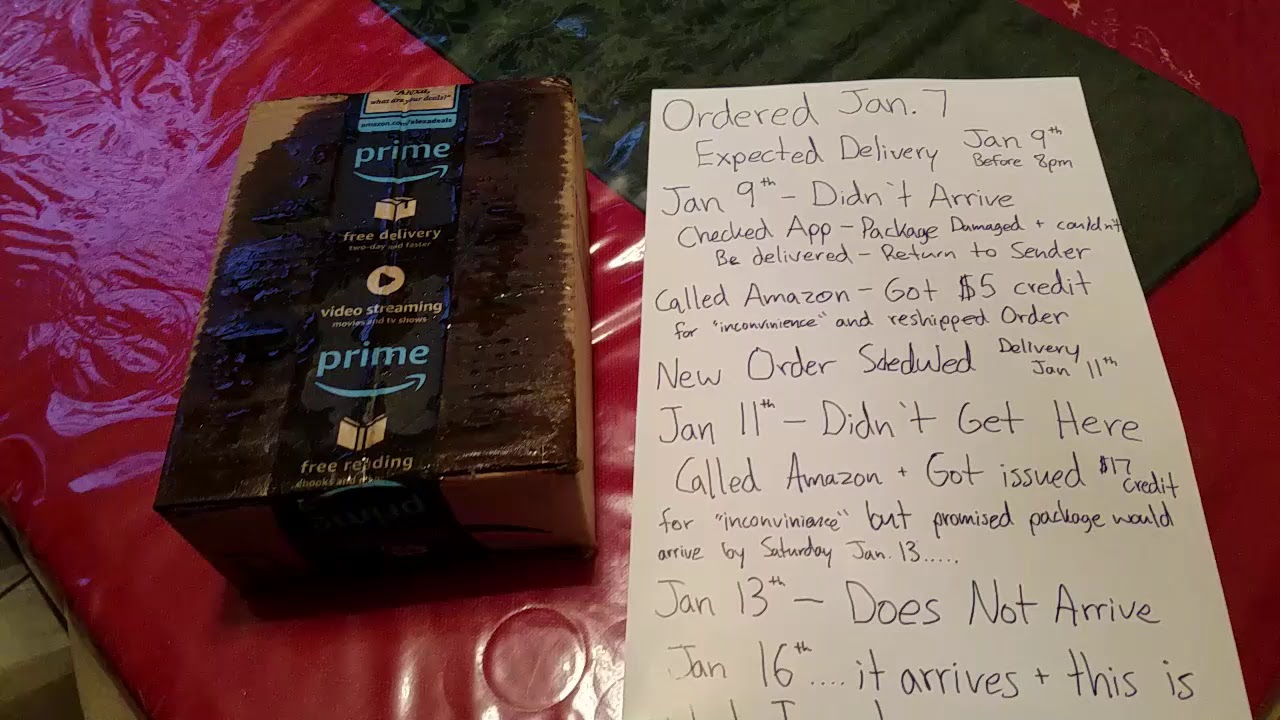 "Alexa,
what are your deals?"
amazon.com/alexadeals
prime
free delivery
two-day and faster
video streaming
movies and tv shows
prime
free reading
ebooks and
prime
Ordered Jan. 7
Expected Delivery Jan 9th
Before 8pm
Jan 9th - Didn't Arrive
Checked App - Package Damaged + couldn't
Be delivered - Return to Sender
Called Amazon - Got $5 credit
for "inconvinience" and reshipped Order
New Order Scedwled Delivery
Jan 11th
Jan 11th - Didn't Get Here
Called Amazon + Got issued $17
credit
for "inconvinience" but promised package would
arrive by Saturday Jan. 13.....
Jan 13th - Does Not Arrive
Jan 16th .... it arrives + this is